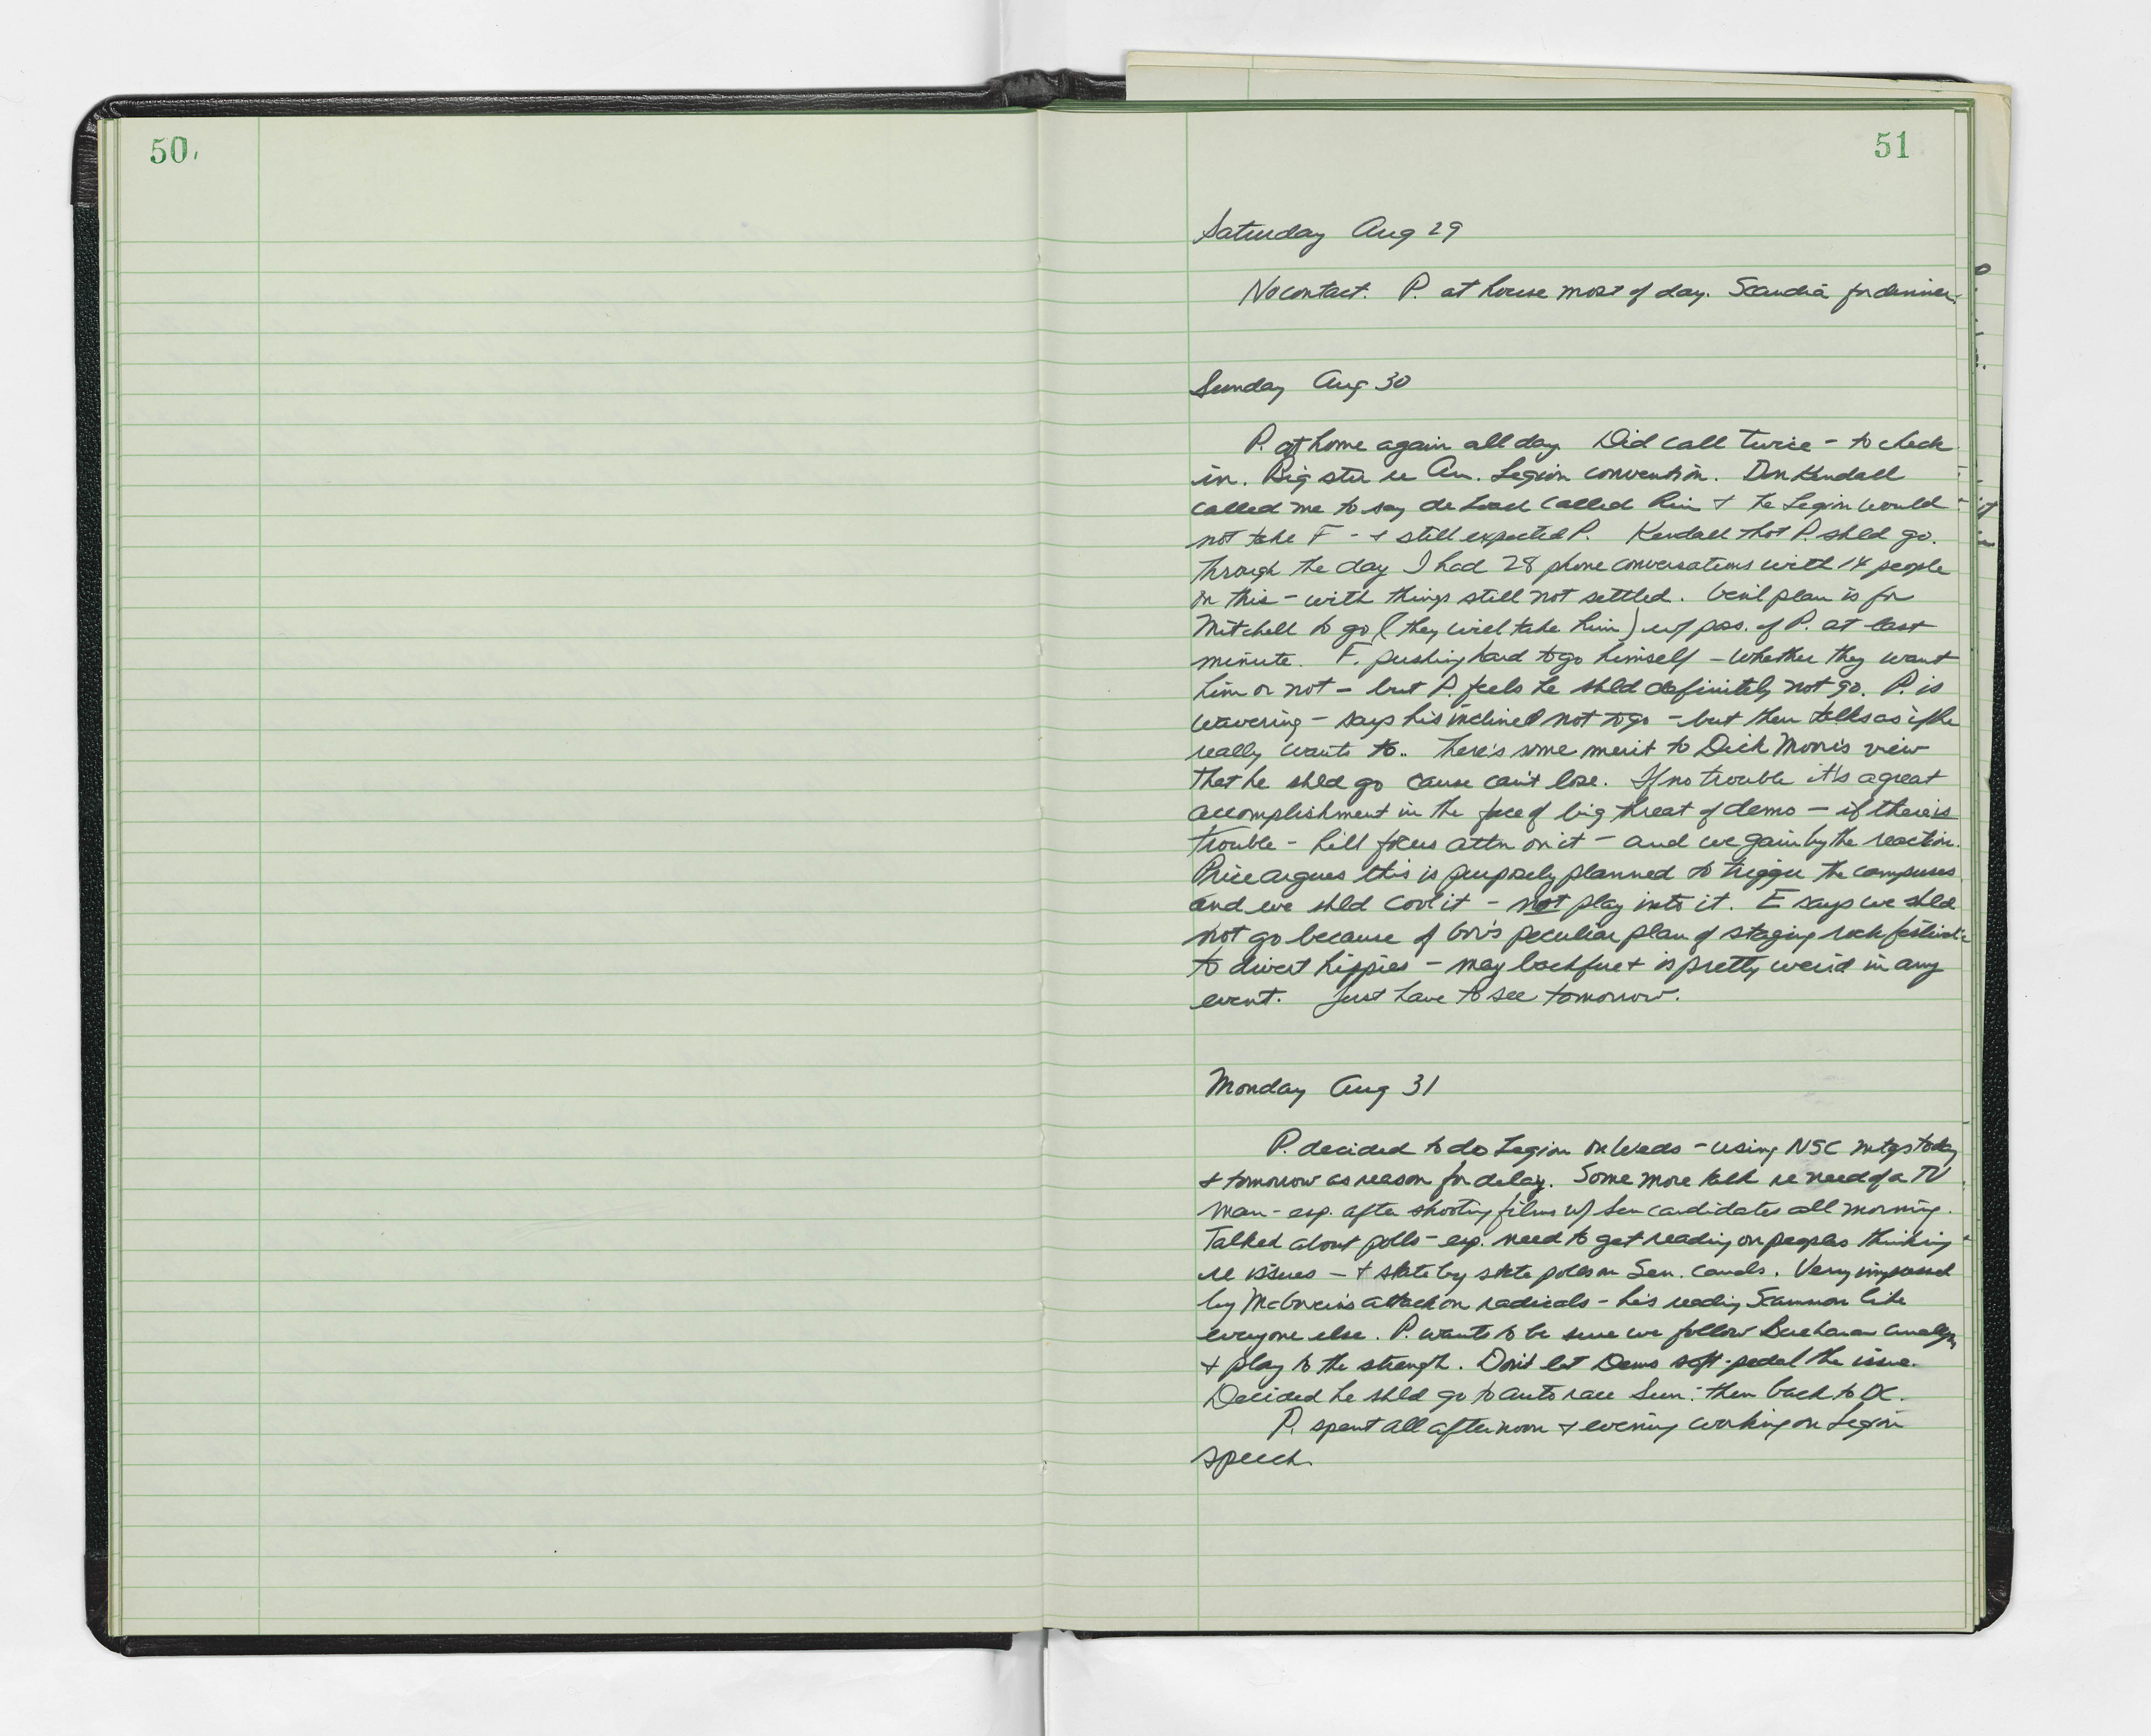 50
51
Saturday Aug 29
No contact. P. at house most of day. Scandia for dinner.
Sunday Aug 30
P. at home again all day. Did call twice - to check
in. Big stir re Am. Legion convention. Don Kendall
called me to say de Loach called him + the Legion would
not take F - + still expected P. Kendall thot P. shld go.
Through the day I had 28 phone conversations with 14 people
on this - with things still not settled. Gen'l plan is for
Mitchell to go (they will take him) w/ pos. of P. at last
minute. F. pushing hard to go himself - whether they want
him or not - but P. feels he shld definitely not go. P. is
wavering - says he's inclined not to go - but then talks as if he
really wants to.. There's some merit to Dick Moore's view
that he shld go cause can't lose. If no trouble it's a great
accomplishment in the face of big threat of demo - if there is
trouble - he'll focus attn on it - and we gain by the reaction.
Price argues this is purposely planned to trigger the campuses
and we shld cool it - not play into it. E says we shld
not go because of Gov's peculiar plan of staging rock festival
to divert hippies - may backfire + is pretty weird in any
event. Just have to see tomorrow.
Monday Aug 31
P. decided to do Legion on Weds - using NSC mtgs today
+ tomorrow as reason for delay. Some more talk re need of a TV
man - esp. after shooting films w/ Sen candidates all morning.
Talked about polls - esp. need to get reading on peoples thinking
re issues - + state by state polls on Sen. cands. Very impressed
by McGovern's attack on radicals - he's reading Scammon like
everyone else. P. wants to be sure we follow Buchanan analysis
+ play to the strength. Don't let Dems soft-pedal the issue.
Decided he shld go to auto race Sun. then back to DC.
P. spent all afternoon + evening working on Legion
speech.